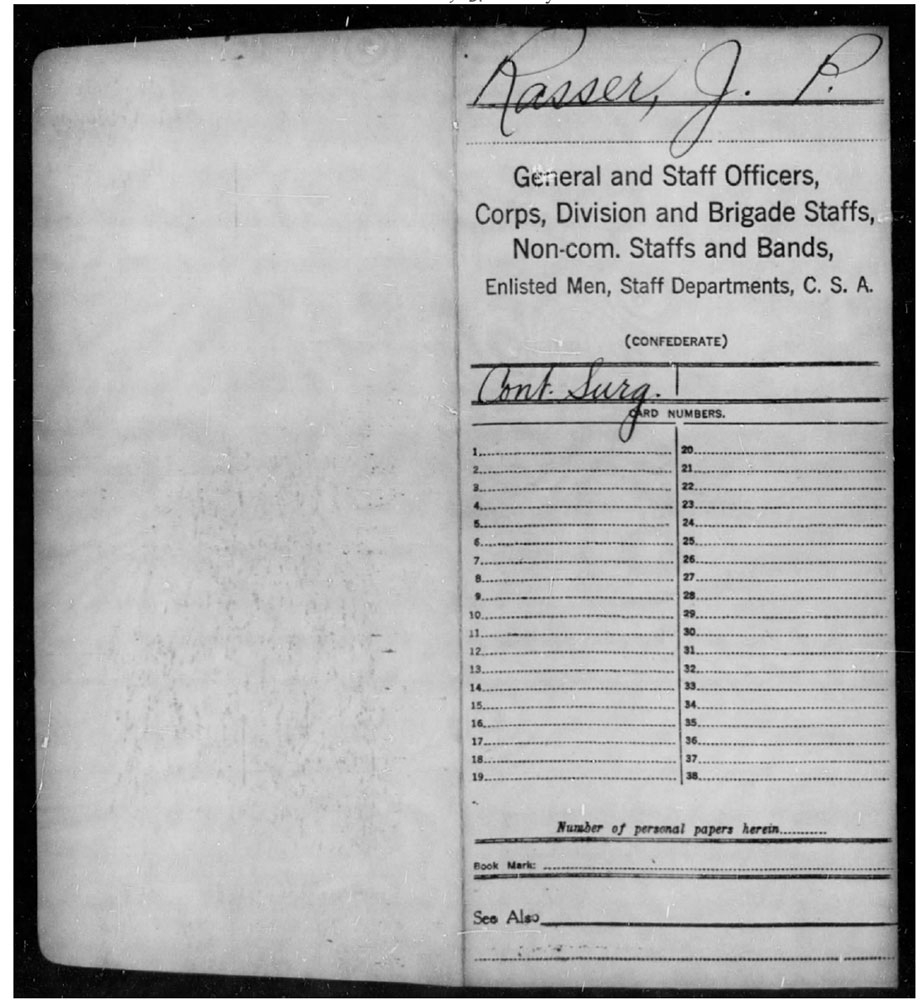 Rasser, J. P.
General and Staff Officers,
Corps, Division and Brigade Staffs,
Non-com. Staffs and Bands,
Enlisted Men, Staff Departments, C. S. A.
(CONFEDERATE)
Cont. Surg.
CARD NUMBERS.
1 20
2 21
3 22
4 23
5 24
6 25
7 26
8 27
9 28
10 29
11 30
12 31
13 32
14 33
15 34
16 35
17 36
18 37
19 38
Number of personal papers herein
Book Mark:
See Also